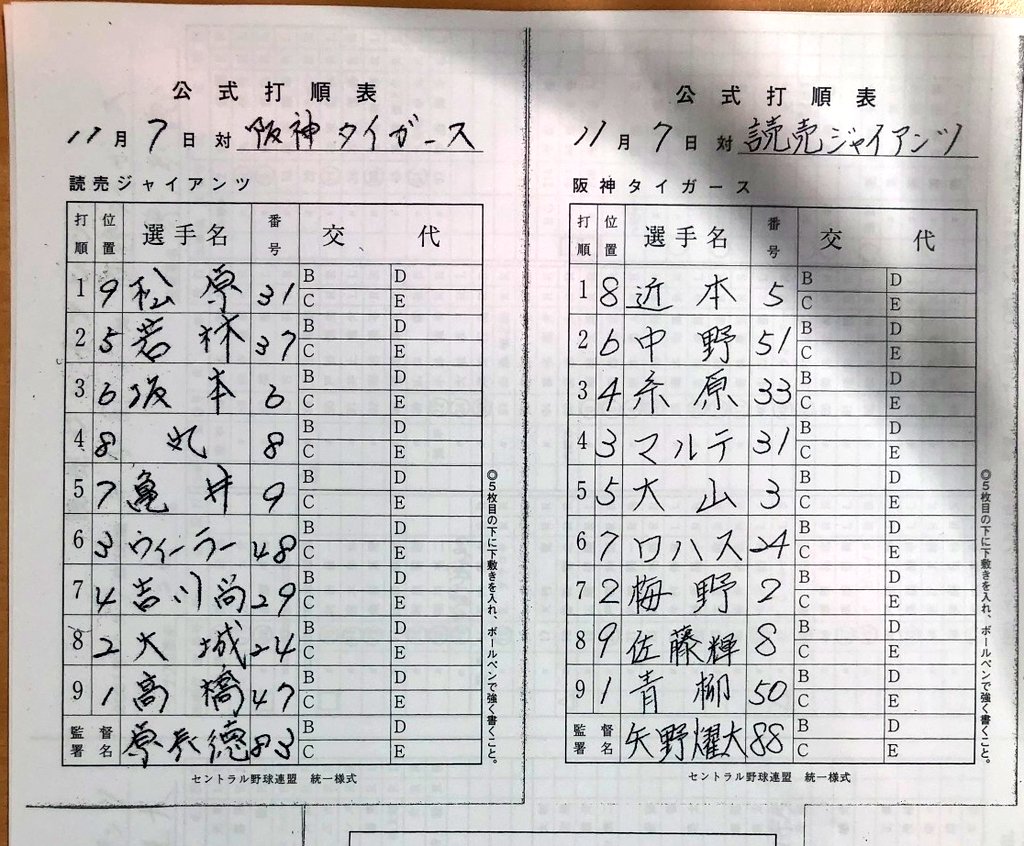 公式打順表
11月7日対 阪神タイガース
読売ジャイアンツ
打順 位置 選手名 番号 交代
1 9 松原 31 B D C E
2 5 若林 37 B D C E
3 6 坂本 6 B D C E
4 8 丸 8 B D C E
5 7 亀井 9 B D C E
6 3 ウィーラー 48 B D C E
7 4 吉川尚 29 B D C E
8 2 大城 24 B D C E
9 1 高橋 47 B D C E
監督署名 原辰徳 83 B D C E
◎5枚目の下に下敷きを入れ、ボールペンで強く書くこと。
セントラル野球連盟 統一様式
公式打順表
11月7日対 読売ジャイアンツ
阪神タイガース
打順 位置 選手名 番号 交代
1 8 近本 5 B D C E
2 6 中野 51 B D C E
3 4 糸原 33 B D C E
4 3 マルテ 31 B D C E
5 5 大山 3 B D C E
6 7 ロハス 24 B D C E
7 2 梅野 2 B D C E
8 9 佐藤輝 8 B D C E
9 1 青柳 50 B D C E
監督署名 矢野燿大 88 B D C E
◎5枚目の下に下敷きを入れ、ボールペンで強く書くこと。
セントラル野球連盟 統一様式